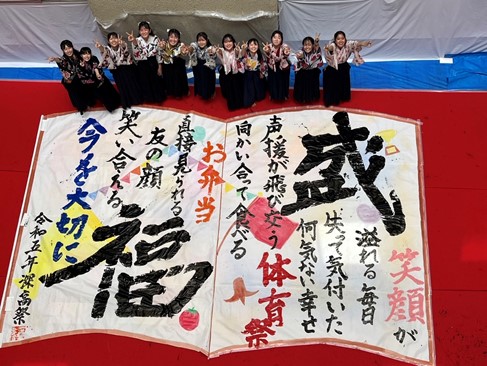 盛
笑顔が
溢れる毎日
失って気付いた
何気ない幸せ
体育祭
声援が飛び交う
向かい合って食べる
お弁当
直接見られる
友の顔
笑い合える
福
今を大切に
令和五年 深高祭